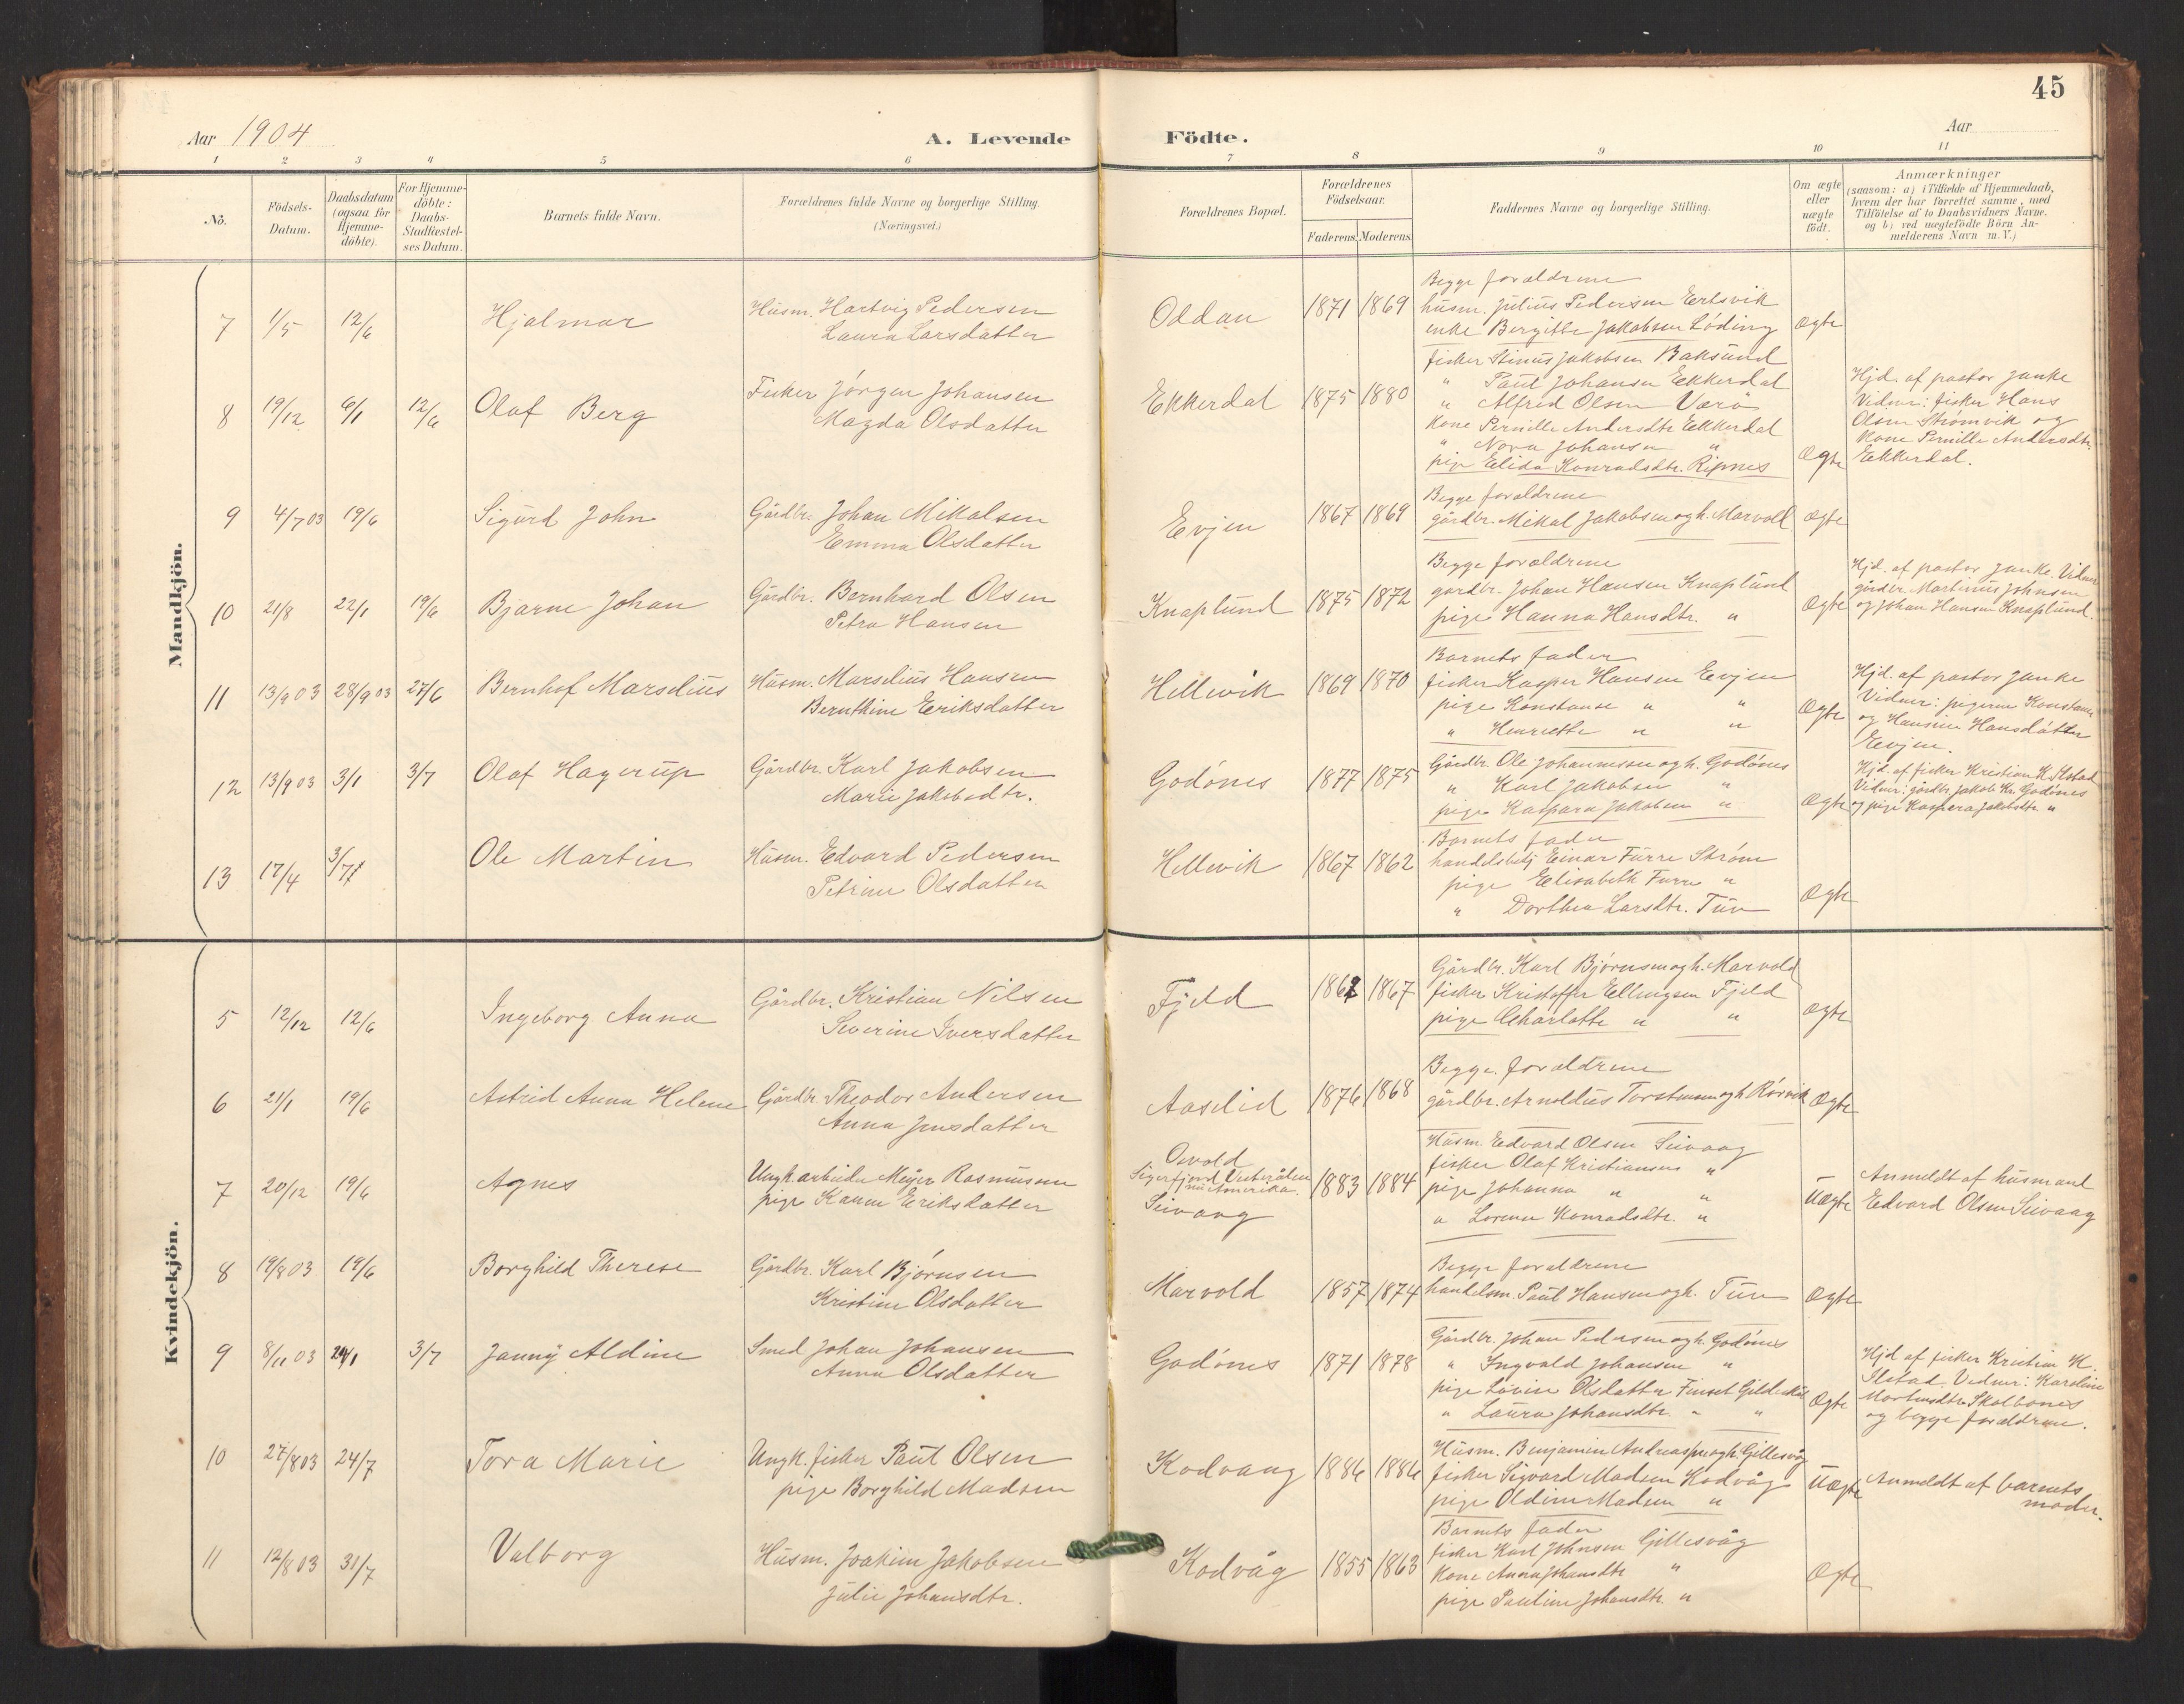 45
Aar 1904
A. Levende Födte.
Aar
1 2 3 4 5 6 7 8 9 10 11
No.
Födsels-Datum.
Daabsdatum (ogsaa for Hjemme-döbte).
For Hjemme-döbte: Daabs-Stadfæstel-ses Datum.
Barnets fulde Navn.
Forældrenes fulde Navne og borgerlige Stilling.
(Næringsvei.)
Forældrenes Bopæl.
Forældrenes Födselsaar.
Faderens. Moderens.
Faddernes Navne og borgerlige Stilling.
Om ægte eller uægte födt.
Anmærkninger
(saasom: a) i Tilfælde af Hjemmedaab,
hvem der har forrettet samme, med
Tilföielse af to Daabsvidners Navne.
og b) ved uægtefödte Börn An-
melderens Navn m. V.)
Mandkjön.
7 1/5 12/6 Hjalmar
Husm. Hartvig Pedersen
Laura Larsdatter
Oddan 1871 1869
Begge forældrene
husm. Julius Pedersen Eertsvik
enke Bergitte Jakobsen Löding
Ægte
8 19/12 6/1 12/6 Olaf Berg
Fisker Jörgen Johansen
Magda Olsdatter
Ekkerdal 1875 1880
fisker Stinus Jakobsen Baksund
" Paul Johansen Ekkerdal
" Alfred Olsen Værö
kone Pernille Andersdtr. Ekkerdal
" Nora Johansen "
pige Elida Konradsdtr. Ripnes
Ægte
Hjd. af pastor Janke
Vidner: fisker Hans
Olsen Strömvik og
kone Pernille Andersdtr.
Ekkerdal.
9 4/7 03 19/6 Sigurd John
Gårdbr. Johan Mikalsen
Emma Olsdatter
Evjen 1867 1869
Begge forældrene
gårdbr. Mikal Jakobsen og h. Marvold
Ægte
10 21/8 22/1 19/6 Bjarne Johan
Gårdbr. Bernhard Olsen
Petra Hansen
Knaplund 1875 1872
Begge forældrene
gårdbr. Johan Hansen Knaplund
pige Hanna Hansdtr. "
Ægte
Hjd. af pastor Janke. Vidner
gårdbr. Martinius Johnsen
og Johan Hansen Knaplund.
11 13/9 03 28/9 03 27/6 Bernhof Marselius
Husm. Marselius Hansen
Bernthine Eriksdatter
Hellevik 1869 1870
Barnets fader
fisker Kasper Hansen Evjen
pige Konstanse " "
" Henriette " "
Ægte
Hjd. af pastor Janke
Vidner: pigerne Konstanse
og Hansine Hansdatter
Evjen.
12 13/9 03 3/1 3/7 Olaf Hagerup
Gårdbr. Karl Jakobsen
Marie Jakobsdtr.
Godönes 1877 1875
Gårdbr. Ole Johannesen og h. Godönes
" Karl Jakobsen "
pige Kaspara Jakobsen "
Ægte
Hjd. af fisker Kristian K. Ilstad
Vidner: gårdbr. Jakob Kr. Godönes
og pige Kaspera Jakobsdtr. "
13 17/4 3/7 Ole Martin
Husm. Edvard Pedersen
Petrine Olsdatter
Hellevik 1867 1862
Barnets fader
handelsbetj Einar Furre Ström
pige Elisabeth Furre "
" Dorthea Larsdtr. Tuv
Ægte
Kvindekjön.
5 12/12 12/6 Ingeborg Anna
Gårdbr. Kristian Nilsen
Severine Iversdatter
Fjeld 1862 1867
Gårdbr. Karl Björnsen og h. Marvold
fisker Kristoffer Ellingsen Fjeld
pige Charlotte " "
Ægte
6 21/1 19/6 Astrid Anna Helene
Gårdbr. Theodor Andersen
Anna Jensdatter
Aaselid 1876 1868
Begge forældrene
gårdbr. Arnoldus Torstensen og h. Rörvik
Ægte
7 20/12 19/6 Agnes
Ungk. arbeider Meyer Rasmussen
pige Kanne Eriksdatter
Osvold
Sigerfjord Vesterålen
nu Amerika.
Seivaag
1883 1884
Husm. Edvard Olsen Seivaag
fisker Olaf Kristiansen "
pige Johanna " "
" Lorense Konradsdtr. "
Uægte
Anmeldt af husmand
Edvard Olsen Seivaag
8 19/8 03 19/6 Borghild Therese
Gårdbr. Karl Björnsen
Kristine Olsdatter
Marvold 1857 1874
Begge forældrene
handelsm. Paul Hansen og h. Tuv
Ægte
9 8/11 03 24/1 3/7 Janny Aldine
Smed Johan Johansen
Anna Olsdatter
Godönes 1871 1878
Gårdbr. Johan Pedersen og h. Godönes
" Ingvald Johansen "
pige Lovise Olsdatter Finset Gildeskål
" Laura Johansdtr. " "
Ægte
Hjd af fisker Kristian K.
Ilstad. Vidner: Karoline
Mortensdtr. Skalbones
og begge forældrene.
10 27/8 03 24/7 Tora Marie
Ungk. fisker Paul Olsen
pige Borghild Madsen
Kodvaag 1886 1886
Husm. Benjamin Andreassen og h. Gillesvåg
fisker Sigvard Madsen Kodvåg
pige Oldine Madsen "
Uægte
Anmeldt af barnets
moder.
11 12/8 03 31/7 Valborg
Husm. Joakim Jakobsen
Julie Johansdtr.
Kodvåg 1855 1863
Barnets fader
fisker Karl Johnsen Gillesvåg
kone Anna Johansdtr "
pige Pauline Johansdtr. "
Ægte